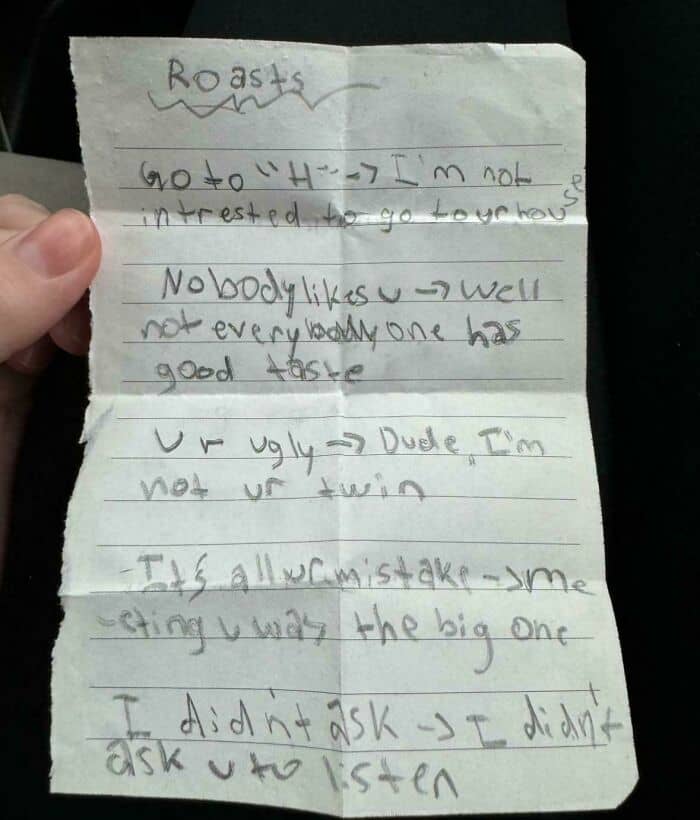 Roasts
Go to "H" -> I'm not
intrested to go to ur house
Nobody likes u -> well
not everybody one has
good taste
U r ugly -> Dude, I'm
not ur twin
-It's all ur mistake -> me
-eting u was the big one
I didn't ask -> I didn't
ask u to listen